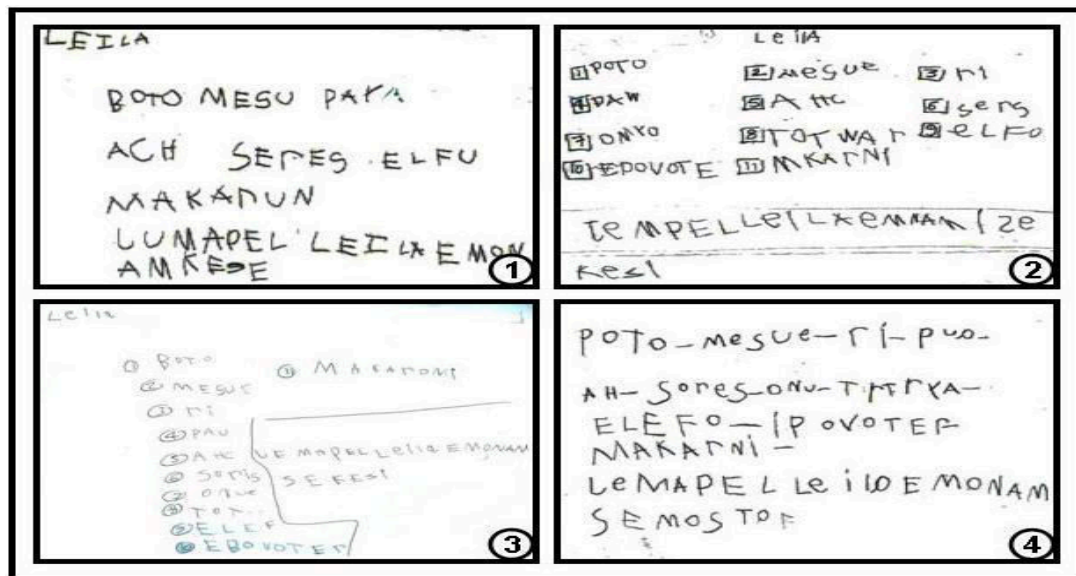 LEILA
BOTO MESU PAYA
ACH SEPES . ELFU
MAKADUN
LUMAPEL LEILA E MON
AMKESE
1
LeilA
1 POTO 2 mesue 3 ri
4 PAW 5 A HC 6 sers
7 ONYO 8 TOT WAT 9 eLFO
10 EPOVOTE 11 MKATNI
Ie MPELLeILAEMNAM I ze
Kesi
2
Leila
1 BOTO
11 MAKATONI
2 MESUE
3 ri
4 PAU
5 A HC
6 Soris
7 onue
8 TOT
9 ELEF
10 EBOVOTER
UE MAPEL Leila EMONAM
SE FESI
3
POTO - mesue - ri - puo -
AH - Sores - ONU -
ELEFO - IPOVOTEP
MAKATNI -
LeMAPEL LeilO E MONAM
SEMOSTOF
4